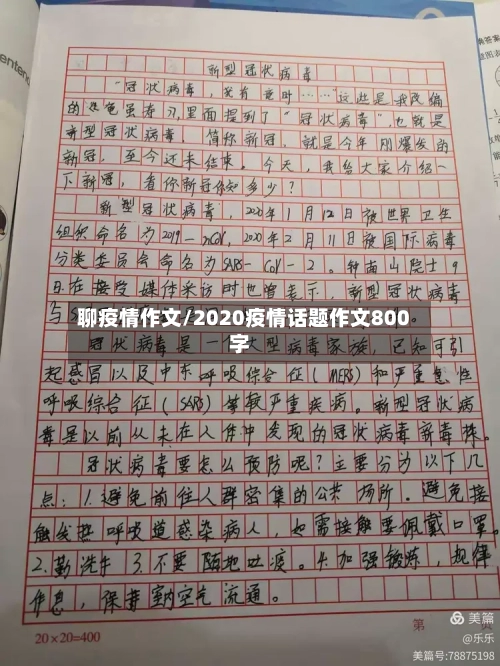 新型冠状病毒
"冠状病毒,没有意时……"这是我改编
的忐忑虽寿刀,里面提到了"冠状病毒",也就是
新型冠状病毒,简称新冠,就是今年刚爆发的
新冠,至今还未结束。今天,我给大家介绍一
下新冠,看你新冠你知多少?
新型冠状病毒,2020年1月12日被世界卫生
组织命名为2019—nCoV,2020年2月11日被国际病毒
分类委员会命名为SARS-CoV-2。钟南山院士9
日在接受媒体采访时也曾表示,新型冠状病毒
与
聊疫情作文/2020疫情话题作文800
字
冠状病毒是一个大型病毒家族,已知可引
起感冒以及中东呼吸综合征(MERS)和严重急性
呼吸综合征(SARS)等较严重疾病。新型冠状病
毒是以前从未在人体中发现的冠状病毒新毒株。
冠状病毒要怎么预防呢?主要分为以下几
点:1.避免前往人群密集的公共场所。避免接
触发热呼吸道感染病人,如需接触要佩戴口罩。
2.勤洗手 3.不要随地吐痰。4.加强锻炼,规律
作息,保持室内空气流通。
20×20=400
第
页
美篇
@乐乐
美篇号:78875198